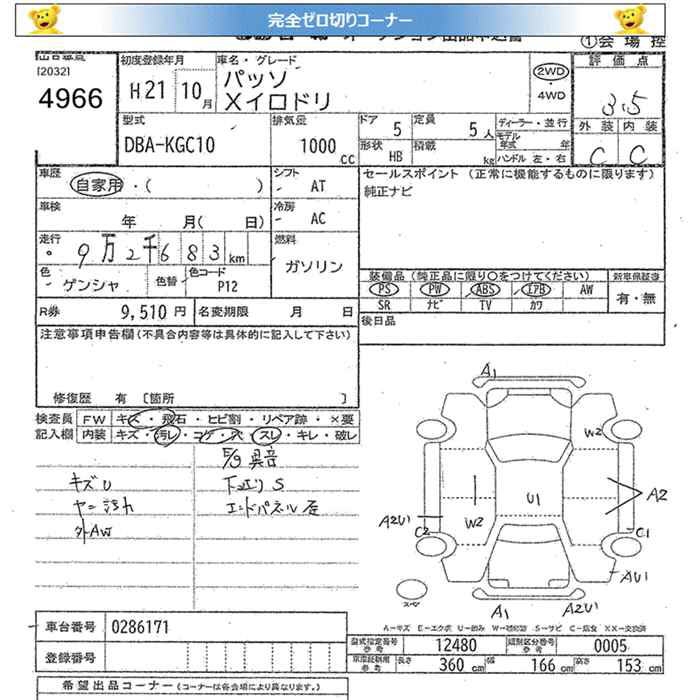 完全ゼロ切りコーナー
①会場控
[2032]
4966
初度登録年月
H21 10月
車名・グレード
パッソ
Xイロドリ
2WD
・
4WD
評価点
3.5
外装 内装
C C
型式
DBA-KGC10
排気量
1000 CC
ドア 5
定員 5人
形状 HB
積載 kg
ディーラー・並行
モデル年式 年
ハンドル 左・右
車歴
自家用・( )
シフト
AT
セールスポイント (正常に機能するものに限ります)
純正ナビ
車検
年 月( 日)
冷房
AC
走行
9万2千683km
燃料
ガソリン
色
ゲンシャ
色替
色コード
P12
装備品(純正品に限り○をつけてください)
PS PW ABS エアB AW
SR ナビ TV カワ
有・無
R券 9,510円
名変期限 月 日
後日品
注意事項申告欄(不具合内容等は具体的に記入して下さい)
修復歴 有 [箇所 ]
検査員
記入欄
FW キズ・飛石・ヒビ割・リペア跡・×要
内装 キズ・汚レ・コゲ・穴・スレ・キレ・破レ
E/g異音
キズU
下廻りS
ヤニ汚れ
エンドパネル歪
外AW
A1
W2
A2
U1
W2
A2U1
C2
C1
AU1
A1
A2U1
スペア
車台番号 0286171
登録番号
型式指定番号
参考
12480
類別区分番号
参考
0005
長さ 360 cm
幅 166 cm
高さ 153 cm
希望出品コーナー(コーナーは各会場により異なります。)